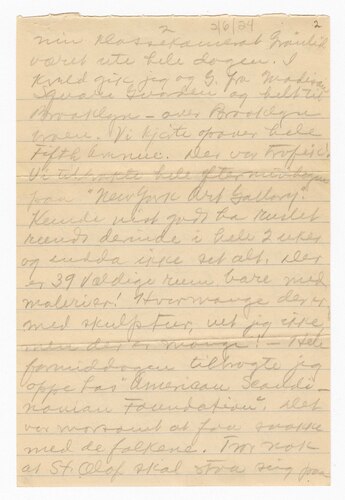 2/6/24 2
min klassekamerat
været ute hele dagen. I
kveld gik jeg og G. fra Madison
Square Garden og helt til
Brooklyn - over Brooklyn
broen. Vi kjørte opover hele
Fifth Avenue. Der var
Vi tilbragte hele eftermiddagen
paa "New York Art Gallery".
Kunde vist godt ha ruslet
rundt derinde i hele 2 uker
og endda ikke set alt. Der
er 39 vældige rum bare med
malerier! Hvormange der er
med skulptur, vet jeg ikke,
men der er mange! - Hele
formiddagen tilbragte jeg
oppe hos "American Scandi-
navian Foundation". Det
var morsomt at faa snakke
med de folkene. Tror nok
at St. Olaf skal staa sig paa